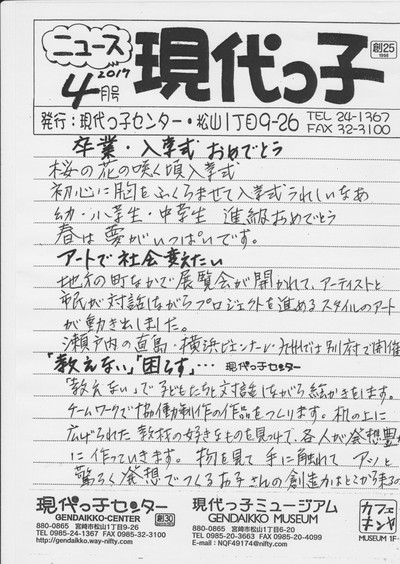 ニュース
2017
4月号
現代っ子
創25
1998
発行：現代っ子センター・松山1丁目9-26
TEL 24-1367
FAX 32-3100
卒業・入学式 おめでとう
桜の花の咲く頃入学式
初心に胸をふくらませて入学式うれしいなあ
幼・小学生・中学生 進級おめでとう
春は夢がいっぱいです。
アートで社会変えたい
地方の町なかで展覧会が開かれて、アーティストと
市民が対話しながらプロジェクトを進めるスタイルのアート
が動き出しました。
瀬戸内の直島・横浜ビエンナーレ・九州では別府で開催
「教えない」「困らす」… 現代っ子センター
「教えない」で子どもたちと対話しながら絵かきをします。
ゲームワークで協働制作の作品をつくります。机の上に
広げられた教材の好きなものを見つけて、各人が発想豊か
に作っていきます。物を見て手に触れてアッと
驚ろく発想でつくるお子さんの創造力はどこから来るの
現代っ子センター
GENDAIKKO-CENTER
創30
880-0865 宮崎市松山1丁目9-26
TEL 0985-24-1367 FAX 0985-32-3100
http://gendaikko.way-nifty.com/
現代っ子ミュージアム
GENDAIKKO MUSEUM
880-0865 宮崎市松山1丁目6-20
TEL 0985-20-3663 FAX 0985-20-4099
E-mail : NQF49174@nifty.com
カフェ
MUSEUM 1F